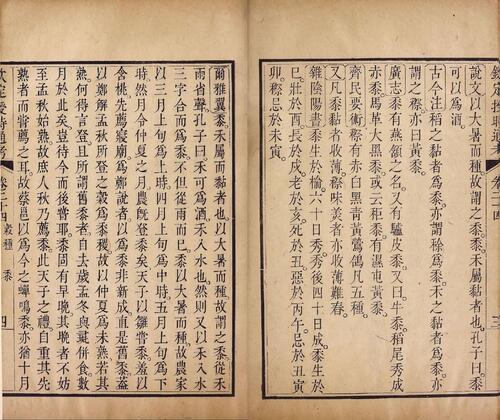 欽定授時通考 卷二十四 三
說文以大暑而種故謂之黍黍禾屬而黏者也孔子曰黍
可以為酒
古今注稻之黏者為黍亦謂稌為黍禾之黏者為黍亦
謂之穄亦曰黃黍
廣志黍有燕頷之名又有驢皮黍又曰牛黍稻尾秀成
赤黍馬革大黑黍或云秬黍有濕屯黃黍
齊民要術穄有赤白黑青黃鷰鴿凡五種
又凡黍黏者收薄穄味美者亦收薄難舂
雜陰陽書黍生於榆六十日秀秀後四十日成黍生於
巳壯於酉長於戌老於亥死於丑惡於丙午忌於丑寅
卯穄忌於未寅
爾雅翼黍禾屬而黏者也以大暑而種故謂之黍從禾
雨省聲孔子曰禾可為酒禾入水也然則又以禾入水
三字合而為黍不但從雨而巳黍以大暑而種故農家
以三月上旬為上時四月上旬為中時五月上旬為下
時然月令仲夏之月農旣登黍矣天子以雛嘗黍羞以
含桃先薦寢廟為鄭說者以為黍非新成直是舊黍蓋
以鄭解孟秋所登之穀為黍稷故以仲夏為未熟若其
熟何得言登且所謂舊黍者自去歲孟冬與彘併食數
月於此矣豈待今而後嘗耶黍固有早晚其晚者不妨
至孟秋始熟故庶人秋乃薦黍此天子之禮自重其先
熟者而嘗薦之耳故蔡邕以為今之蟬鳴黍亦猶十月
欽定授時通考 卷二十四 穀種 黍 四